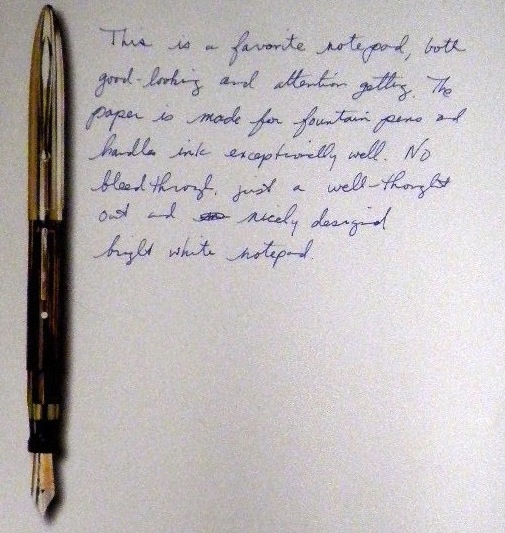 This is a favorite notepad, both
good-looking and attention getting. The
paper is made for fountain pens and
handles ink exceptionally well. No
bleed through, just a well-thought
out and nicely designed
bright white notepad.